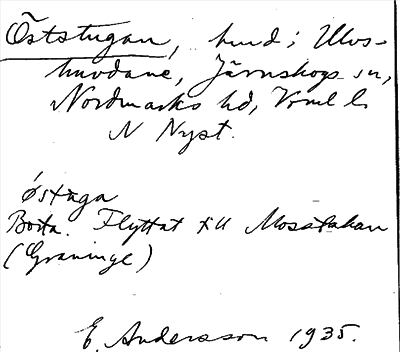 Öststugan, hmd i Ulvs-
huvdane, Järnskogs sn,
Nordmarks hd, Vrml l.
N Nyst.
östúga
Borta. Flyttat till Mosstakan
(Graninge)
E. Andersson 1935.